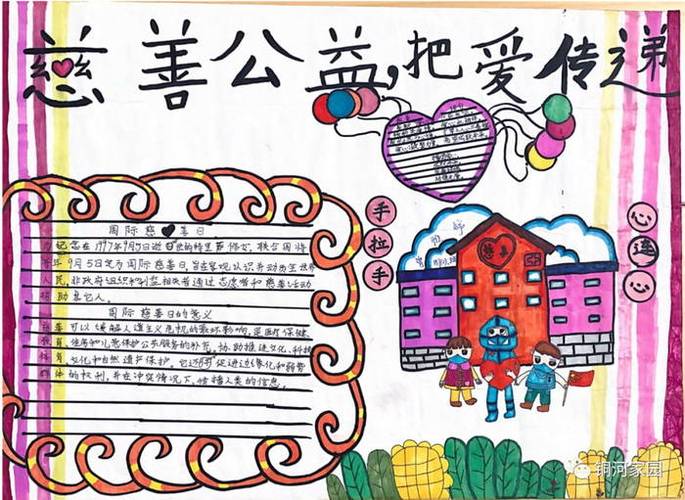 慈善公益,把爱传递
手拉手
心连心
慈善
国际慈善日
为纪念在1997年9月5日逝世的特里萨修女,联合国将
每年9月5日定为国际慈善日,旨在客观认识并动员全世界
人民,非政府组织和利益相关者通过志愿者和慈善活动
帮助其它人。
国际慈善日的意义
慈善可以缓解人道主义危机的最坏影响,是医疗保健、
教育、住房和儿童保护公共服务的补充。协助推进文化、科技
体育、文化和自然遗产保护。它还可促进边缘化和弱势
群体的权利,并在冲突情况下,传播人类的信息。
铜河家园